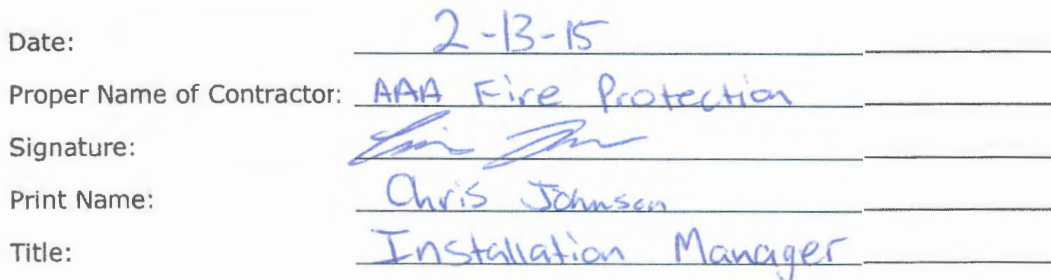 Date: 2-13-15
Proper Name of Contractor: AAA Fire Protection
Signature:
Print Name: Chris Johnson
Title: Installation Manager